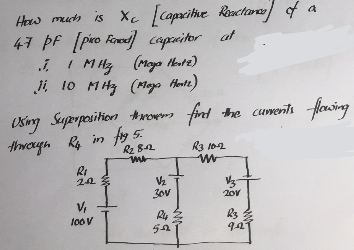 How much is Xc [Capacitive Reactance] of a
47 pF [pico Farad] capacitor at
i, 1 MHz (Mega Hertz)
ii, 10 MHz (Mega Hertz)
Using Superposition theorem find the currents flowing
through R4 in fig 5.
R2 8Ω R3 10Ω
R1
2Ω
V2
30V
V3
20V
V1
100V
R4
5Ω
R3
9Ω